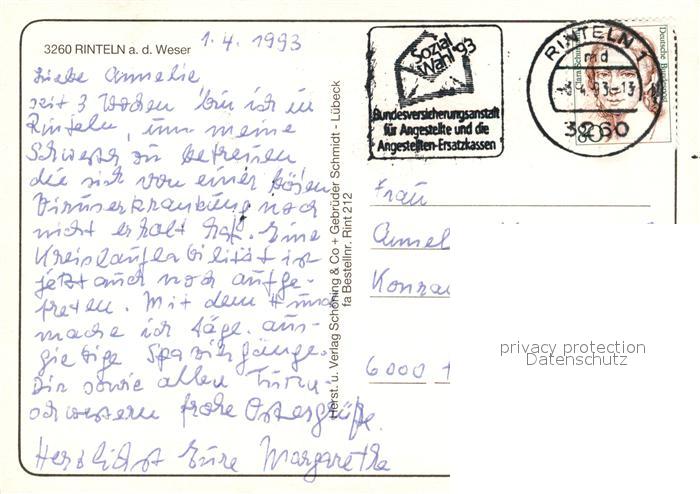 3260 RINTELN a. d. Weser
1.4.1993
Liebe Annelie
seit 3 Wochen bin ich in
Rinteln, um meine
Schwester zu betreuen
die sich von einer bösen
Viruserkrankung noch
nicht erholt hat. Eine
Kreislauflabilität ist
jetzt auch noch aufge-
treten. Mit dem Hund
mache ich tägl. aus-
giebige Spaziergänge.
Dir sowie allen Turn-
schwestern frohe Ostergrüße.
Herzlichst Eure Margarethe
Herst. u. Verlag Schöning & Co + Gebrüder Schmidt - Lübeck
fa Bestellnr. Rint 212
Sozial
Wahl '93
Bundesversicherungsanstalt
für Angestellte und die
Angestellten-Ersatzkassen
RINTELN 1
md
4.93-13
3260
Deutsche Bundespost
80
Frau
Annel
Konra
6000
privacy protection
Datenschutz